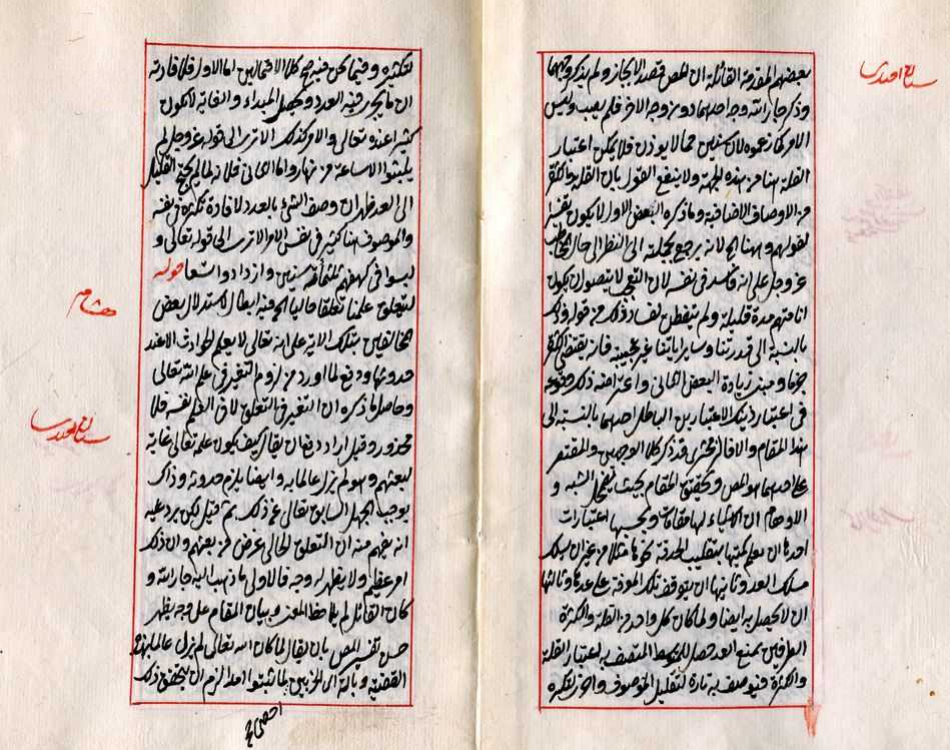 بعضهم المقدمة القائلة ان المص قصد الايجاز ولم يذكر وجهها
وذكر جار الله وجه احدهما دون وجه الاخر فلم يصب وليس
الامر كما زعموه لان سنين مما لا يوذن فلا يمكن اعتبار
القلة هنا من هذه الجهة ولا ينفع القول بان القلة والكثرة
من الاوصاف الاضافية وما ذكره البعض الاول لا يكون تفسيرا
لقولهم وههنا لانه يرجع بجملته الى النظر الى حال المخاطب
عز وجل على انه فاسد في نفسه لان التعجب لا يتصور ان يكون
انامتهم مدة قليلة ولم يتفطن لفساد ذلك من قوله وذلك
بالنسبة الى قدرتنا وسائر اياتنا غير عجيبة فانه يقتضي الكثرة
جزما ومبنى زيادة البعض الثاني واعتراضه ذلك
في اعتبار ذينك الاعتبارين الباطل احدهما بالنسبة الى
هذا المقام والا فالزمخشري قد ذكر كلا الوجهين والمقتصر
على احدهما هو المص وتحقيق المقام بحيث يضمحل الشبه و
الاوهام ان الاشياء لها مقامات وبحسبها اعتبارات
احدها ان يعلم كميتها بتقليب الحدقة نحوها مثلا من غير ان يسلك
مسلك العد وثانيها ان يتوقف تلك المعرفة على عدها وثالثها
ان لا يحصل به ايضا ولما كان كل واحد من القلة والكثرة
الطرفين يمنع العد حصل للتوسط المتصف به اعتبار القلة
والكثرة فيوصف به تارة لتقليل الموصوف واخرى لتكثيره
سنان افندى
لتكثيره وفيما نحن فيه صح كلا الاحتمالين اما الاول فلافادته
ان ما يجرى فيه العدد ويحصل المبداء والغاية لا يكون
كثيرا عنده تعالى والامر كذلك الا ترى الى قوله عز وجل لم
يلبثوا الا ساعة من نهار واما الثانى فلانه لما لم يحتج القليل
الى العد ظهر ان وصف الشئ بالعدد لافادة تكثره في نفسه
والموصوف هنا كثير في نفس الامر الا ترى الى قوله تعالى و
لبسوا في كهفهم ثلثمائة سنين وازدادوا تسعا قوله
ليتعلق علمنا تعلقا حاليا الخ فيه ابطال لاستدلال بعض
المخالفين بتلك الاية على انه تعالى لا يعلم الحوادث الا عند
حدوثها ودفع لما اورد من لزوم التغير في علم الله تعالى
وحاصل ما ذكره ان التغير في التعلق لا في العلم نفسه فلا
محذور وقيل اراد دفع ان يقال كيف يكون علمه تعالى غاية
لبعثهم وهو لم يزل عالما به وايضا يلزم حدوثه وذاك
يوجب الجهل السابق تعالى عن ذلك ثم قيل لكن يرد عليه
انه يفهم منه ان التعلق الحالى غرض من بعثهم وان ذلك
امر عظيم ولا يظهر له وجه فالاولى ما ذهب اليه جار الله و
كان القائل لم يلاحظ المعنى وبيان المقام على وجه يظهر
حسن تفسير المص بان يقال لما كان الله تعالى لم يزل عالما بهذه
القضية وبانه اى الحزبين لما لبثوا امدا لزم ان يتحقق ذلك
هشام
سنان افندى
احصى